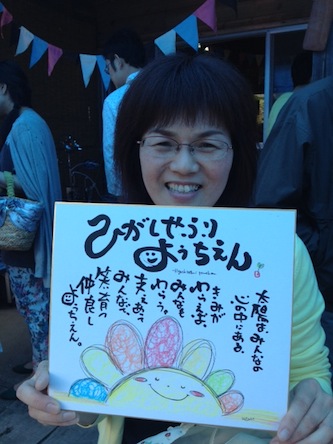 ひがしせふり
ようちえん
太陽は、みんなの
心の中にある。
きみが
わらえば、
みんなも
わらう。
支えあって
みんなで、
笑い育つ
仲良し
ようちえん。